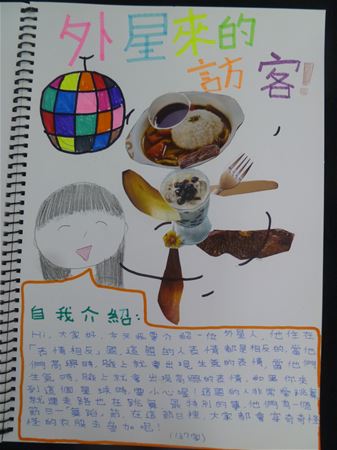 外星來的
訪客!
自我介紹:
Hi,大家好,今天我要介紹一位外星人,他住在
「表情相反」國,這國的人表情都是相反的,當他
們高興時,臉上就會出現生氣的表情,當他們
生氣時,臉上就會出現高興的表情,如果你來
到這個星球時要小心喔!這國的人非常愛跳舞
就連走路也在跳舞,最特別的事,他們有一個
節日—「舞蹈」節,在這節日裡,大家都會穿奇奇怪
怪的衣服去參加呢!